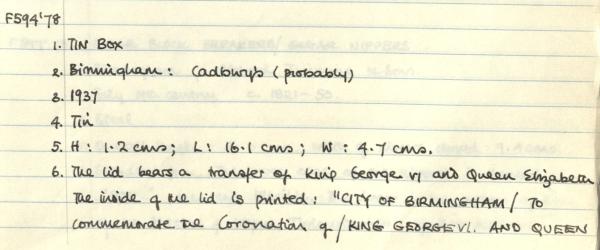 F594'78
1. TIN BOX
2. Birmingham: Cadburys (probably)
3. 1937
4. Tin
5. H: 1.2 cms; L: 16.1 cms; W: 4.7 cms.
6. The lid bears a transfer of King George VI and Queen Elizabeth
The inside of the lid is printed: "CITY OF BIRMINGHAM/ TO
commemorate the Coronation of /KING GEORGE VI. AND QUEEN